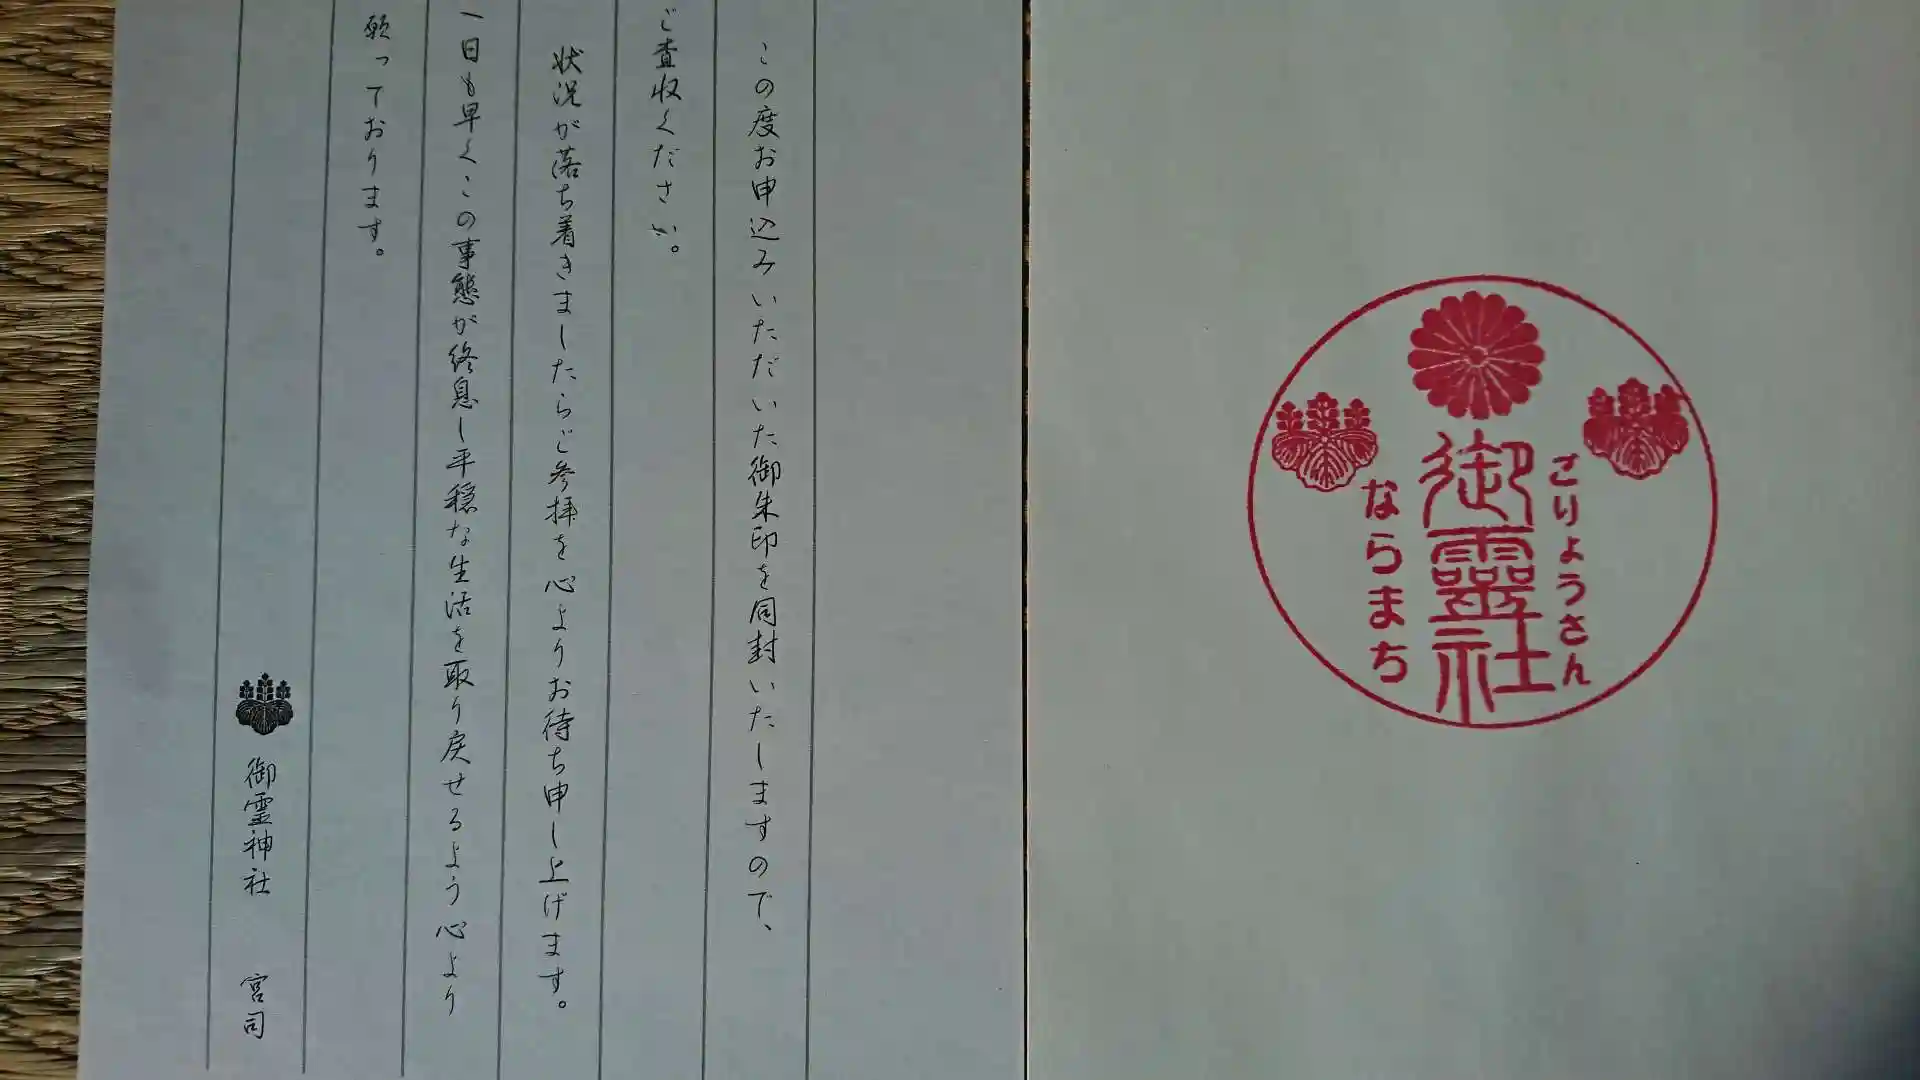 ごりょうさん
御霊社
ならまち
この度お申込みいただいた御朱印を同封いたしますので、
ご査収ください。
状況が落ち着きましたらご参拝を心よりお待ち申し上げます。
一日も早くこの事態が終息し平穏な生活を取り戻せるよう心より
願っております。
御霊神社 宮司